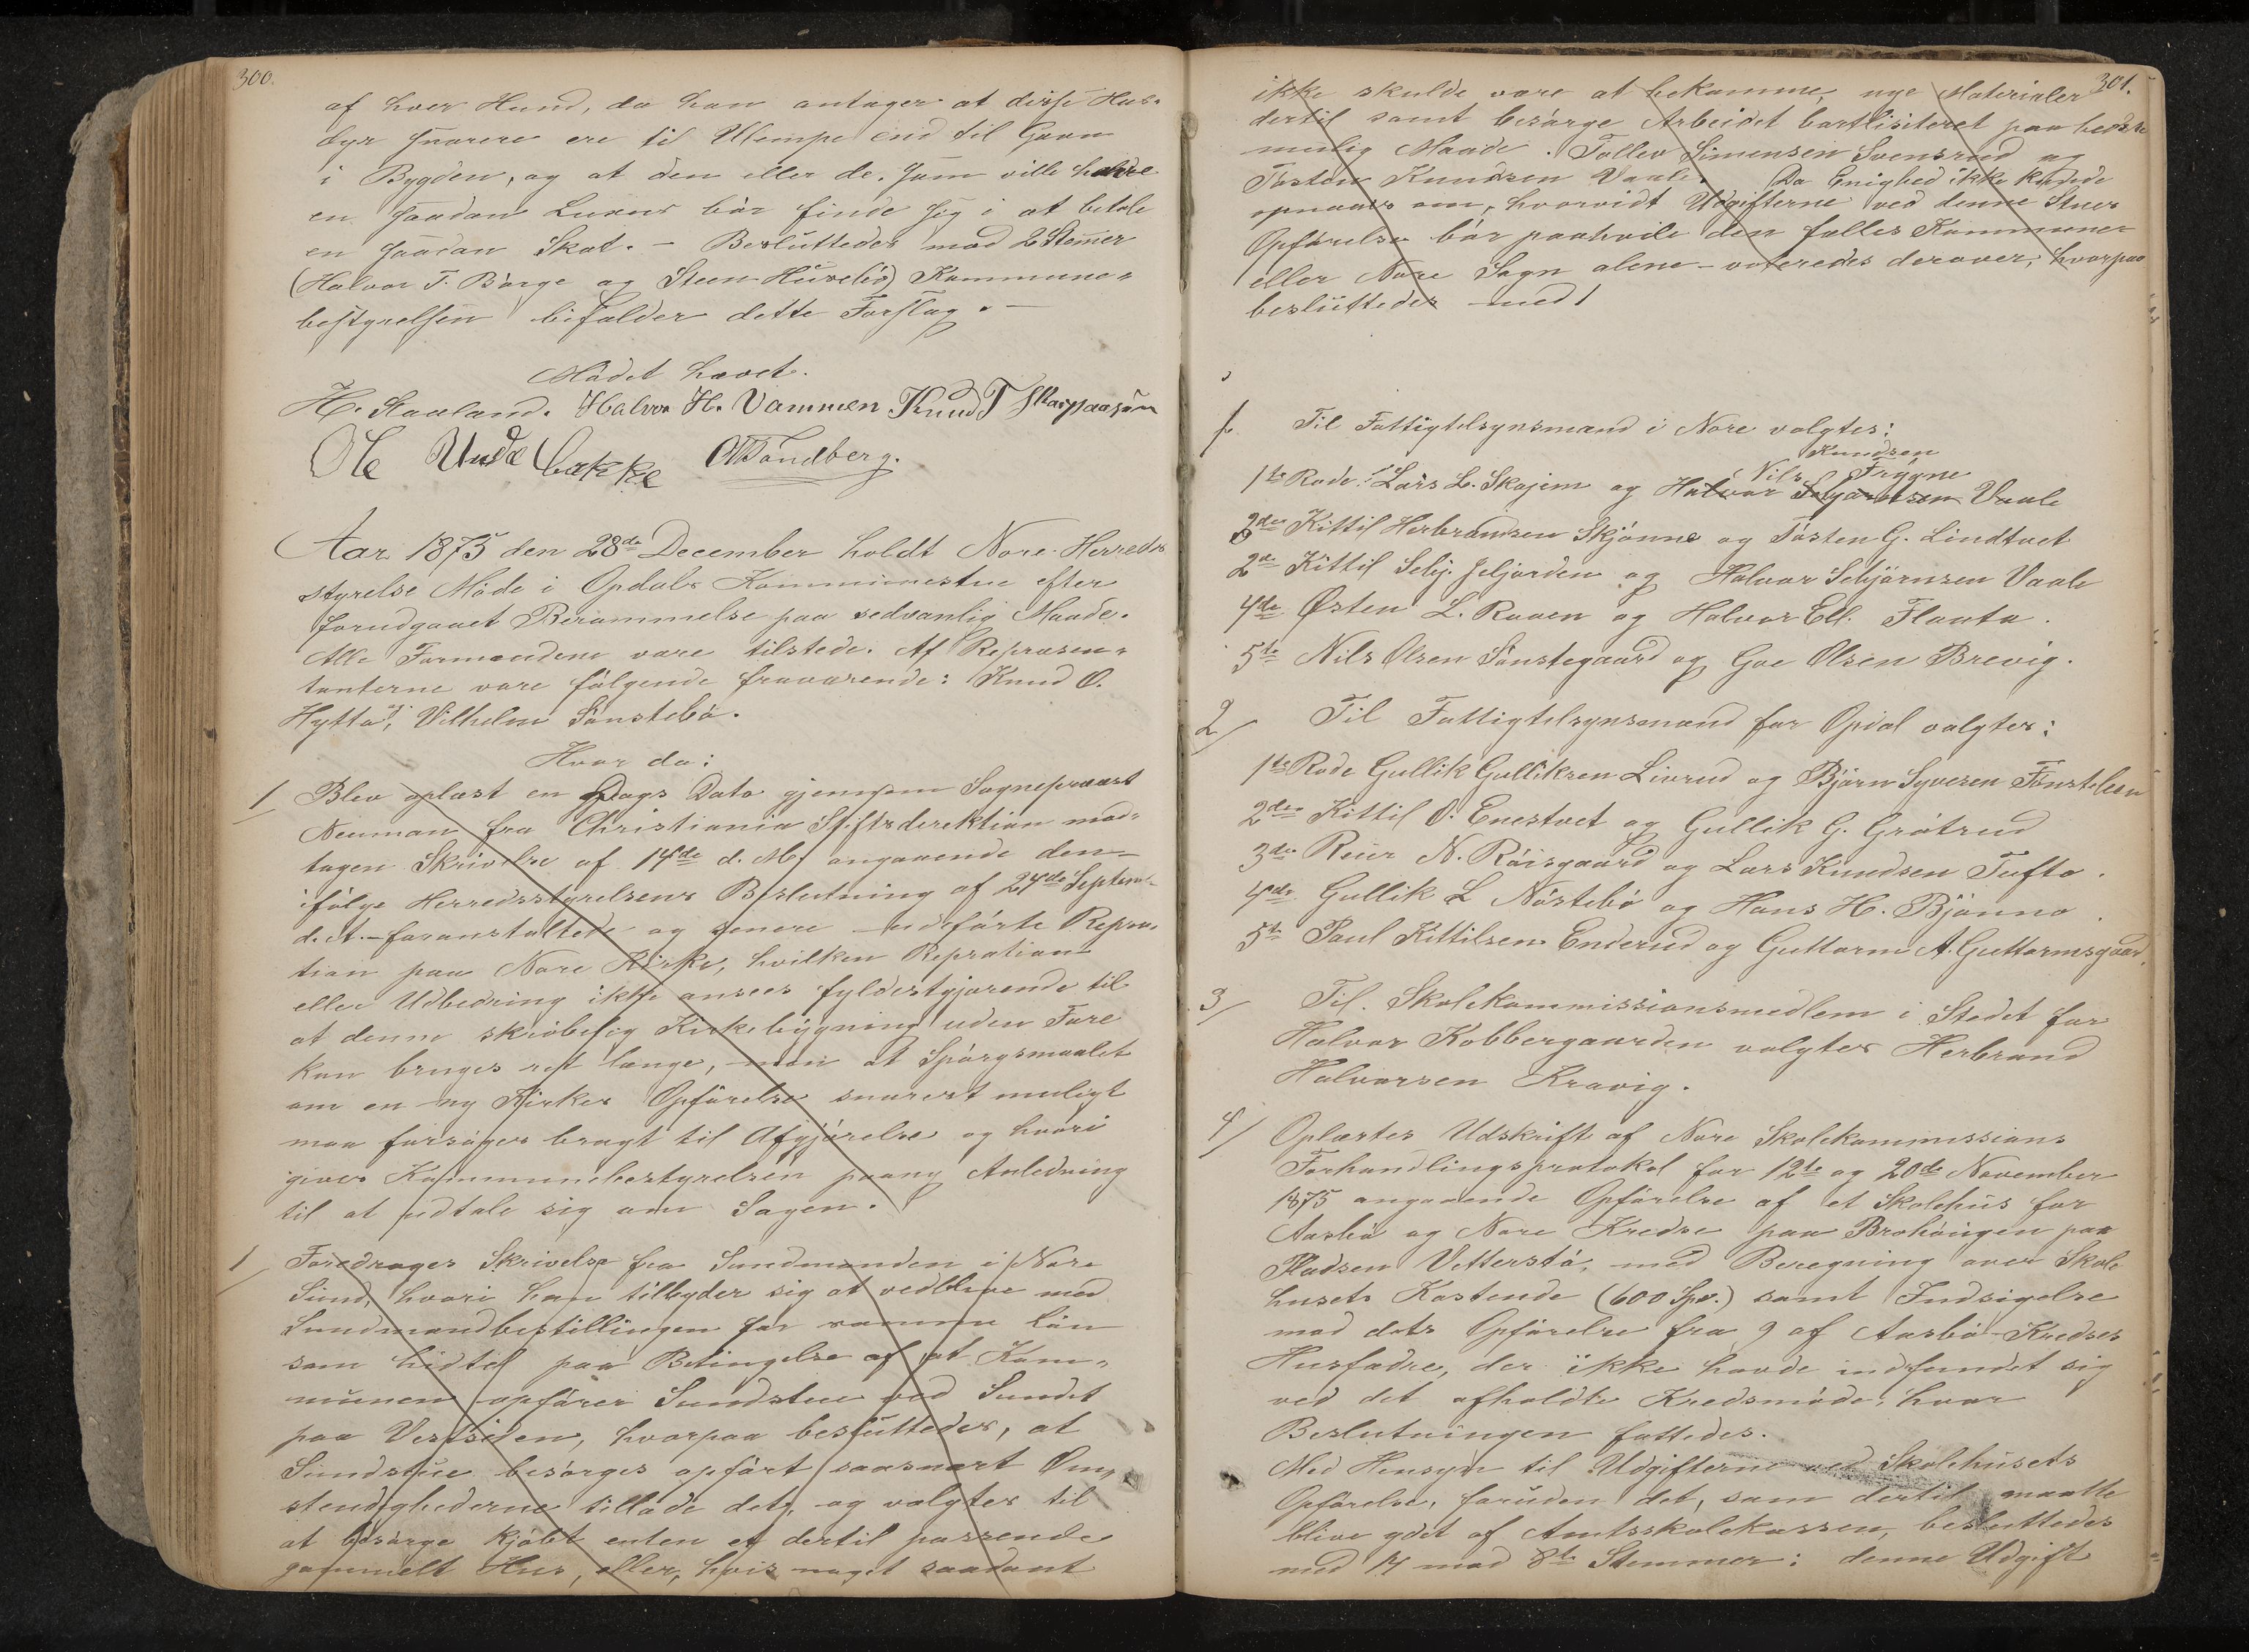 300.
af hver Hund, da han antager at disse Hus-
dyr snarere ere til Ulempe end til Gavn
i Bygden, og at den eller de, som ville holde
en saadan Luxus bør finde sig i at betale
en saadan Skat. – Besluttedes mod 2 Stemmer
(Halvor T. Børge og Steen Huseby) Kommune-
bestyrelsen bifalder dette Forslag. –
Mødet hævet.
H. Skaaland. Halvor H. Vammen Knud T
Ole Undebakke Sandberg.
Aar 1875 den 28de December holdt Nore Herreds
styrelse Møde i Opdals Kommunestue efter
forudgaaet Berammelse paa sedvanlig Maade.
Alle Formændene vare tilstede. Af Repræsen-
tanterne vare følgende fraværende: Knud O.
Hytta, og Vilhelm Sønstebø.
Hvor da:
1/ Blev oplæst en Dags Dato gjennem Sognepræst
Neuman fra Christiania Stiftsdirektion mod-
tagen Skrivelse af 14de d. M. angaaende den –
ifølge Herredsstyrelsens Beslutning af 24de Septem-
d. A. – foranstaltede og senere udførte Repra-
tion paa Nore Kirke, hvilken Repration
eller Udbedring ikke ansees fyldestgjørende til
at denne skrøbelig Kirkebygning uden Fare
kan bruges ret længe, men at Spørgsmaalet
om en ny Kirkes Opførelse snarest muligt
maa forsøges bragt til Afgjørelse og hvori
gives Kommunebestyrelsen paany Anledning
til at udtale sig om Sagen.
1/ Foredrages Skrivelse fra Sundmanden i Nore
Sund, hvori han tilbyder sig at vedblive med
Sundmandbestillingen for samme Løn
som hidtil paa Betingelse af at Kom-
munen opfører Sundstue ved Sundet
paa Vestsiden, hvorpaa besluttedes, at
Sundstue besørges opført saasnart Om-
stendighederne tillade det, og valgtes til
at besørge kjøbt enten et dertil passende
gammelt Hus, eller, hvis noget saadant
301.
ikke skulde være at bekomme, nye Materialer
dertil samt besørge Arbeidet bortlisiteret paa bedste
mulig Maade. Tollev Simensen Svensrud og
Tosten Knudsen Vaale. Da Enighed ikke kunde
opnaaes om, hvorvidt Udgifterne ved denne Stues
Opførelse bør paahvile den fælles Kommune
eller Nore Sogn alene – voteredes derover, hvorpaa
besluttedes med 1
1. Til Fattigtilsynsmænd i Nore valgtes:
Knudsen
Nils Frygne
1ste Rode: Lars L. Skajem og Halvor Vaale
3de Kittil Herbrandsen Skjønne og Tosten G. Lindtvet
2de Kittil Seljorden og Halvor Vaale
4de Østen L. Raaen og Halvor Ell. Flaata.
5te Nils Olsen Sønstegaard og Goe Olsen Brevig.
2/ Til Fattigtilsynsmænd for Opdal valgtes:
1ste Rode Gullik Gulliksen Livrud og Bjørn Syversen
2den Kittil O. Enestvet og Gullik G. Grøtrud
3de N. Røisgaard og Lars Knudsen Tufto.
4de Gullik L Nøstebø og Hans H. Bjønno.
5te Paul Kittilsen Enderud og Guttorm A. Guttormsgaard.
3/ Til Skolekommissionsmedlem i Stedet for
Halvor Kobbergaarden valgtes Herbrand
Halvorsen Kravig.
4/ Oplæstes Udskrift af Nore Skolekommissions
Forhandlingsprotokol for 12te og 20de November
1875 angaaende Opførelse af et Skolehus for
Aasbø og Nore Kredse paa Brohaugen paa
Pladsen med Beregning over Skole
husets Kostende (600 Spd.) samt Indsigelse
mod dets Opførelse fra 9 af Aasbø-Kredses
Husfædre, der ikke havde indfundet sig
ved det afholdte Kredsmøde, hvor
Beslutningen fattedes.
Med Hensyn til Udgifterne ved Skolehusets
Opførelse, foruden det, som dertil maatte
blive ydet af Amtsskolekassen, besluttedes
med 14 mod 8te Stemmer: denne Udgift